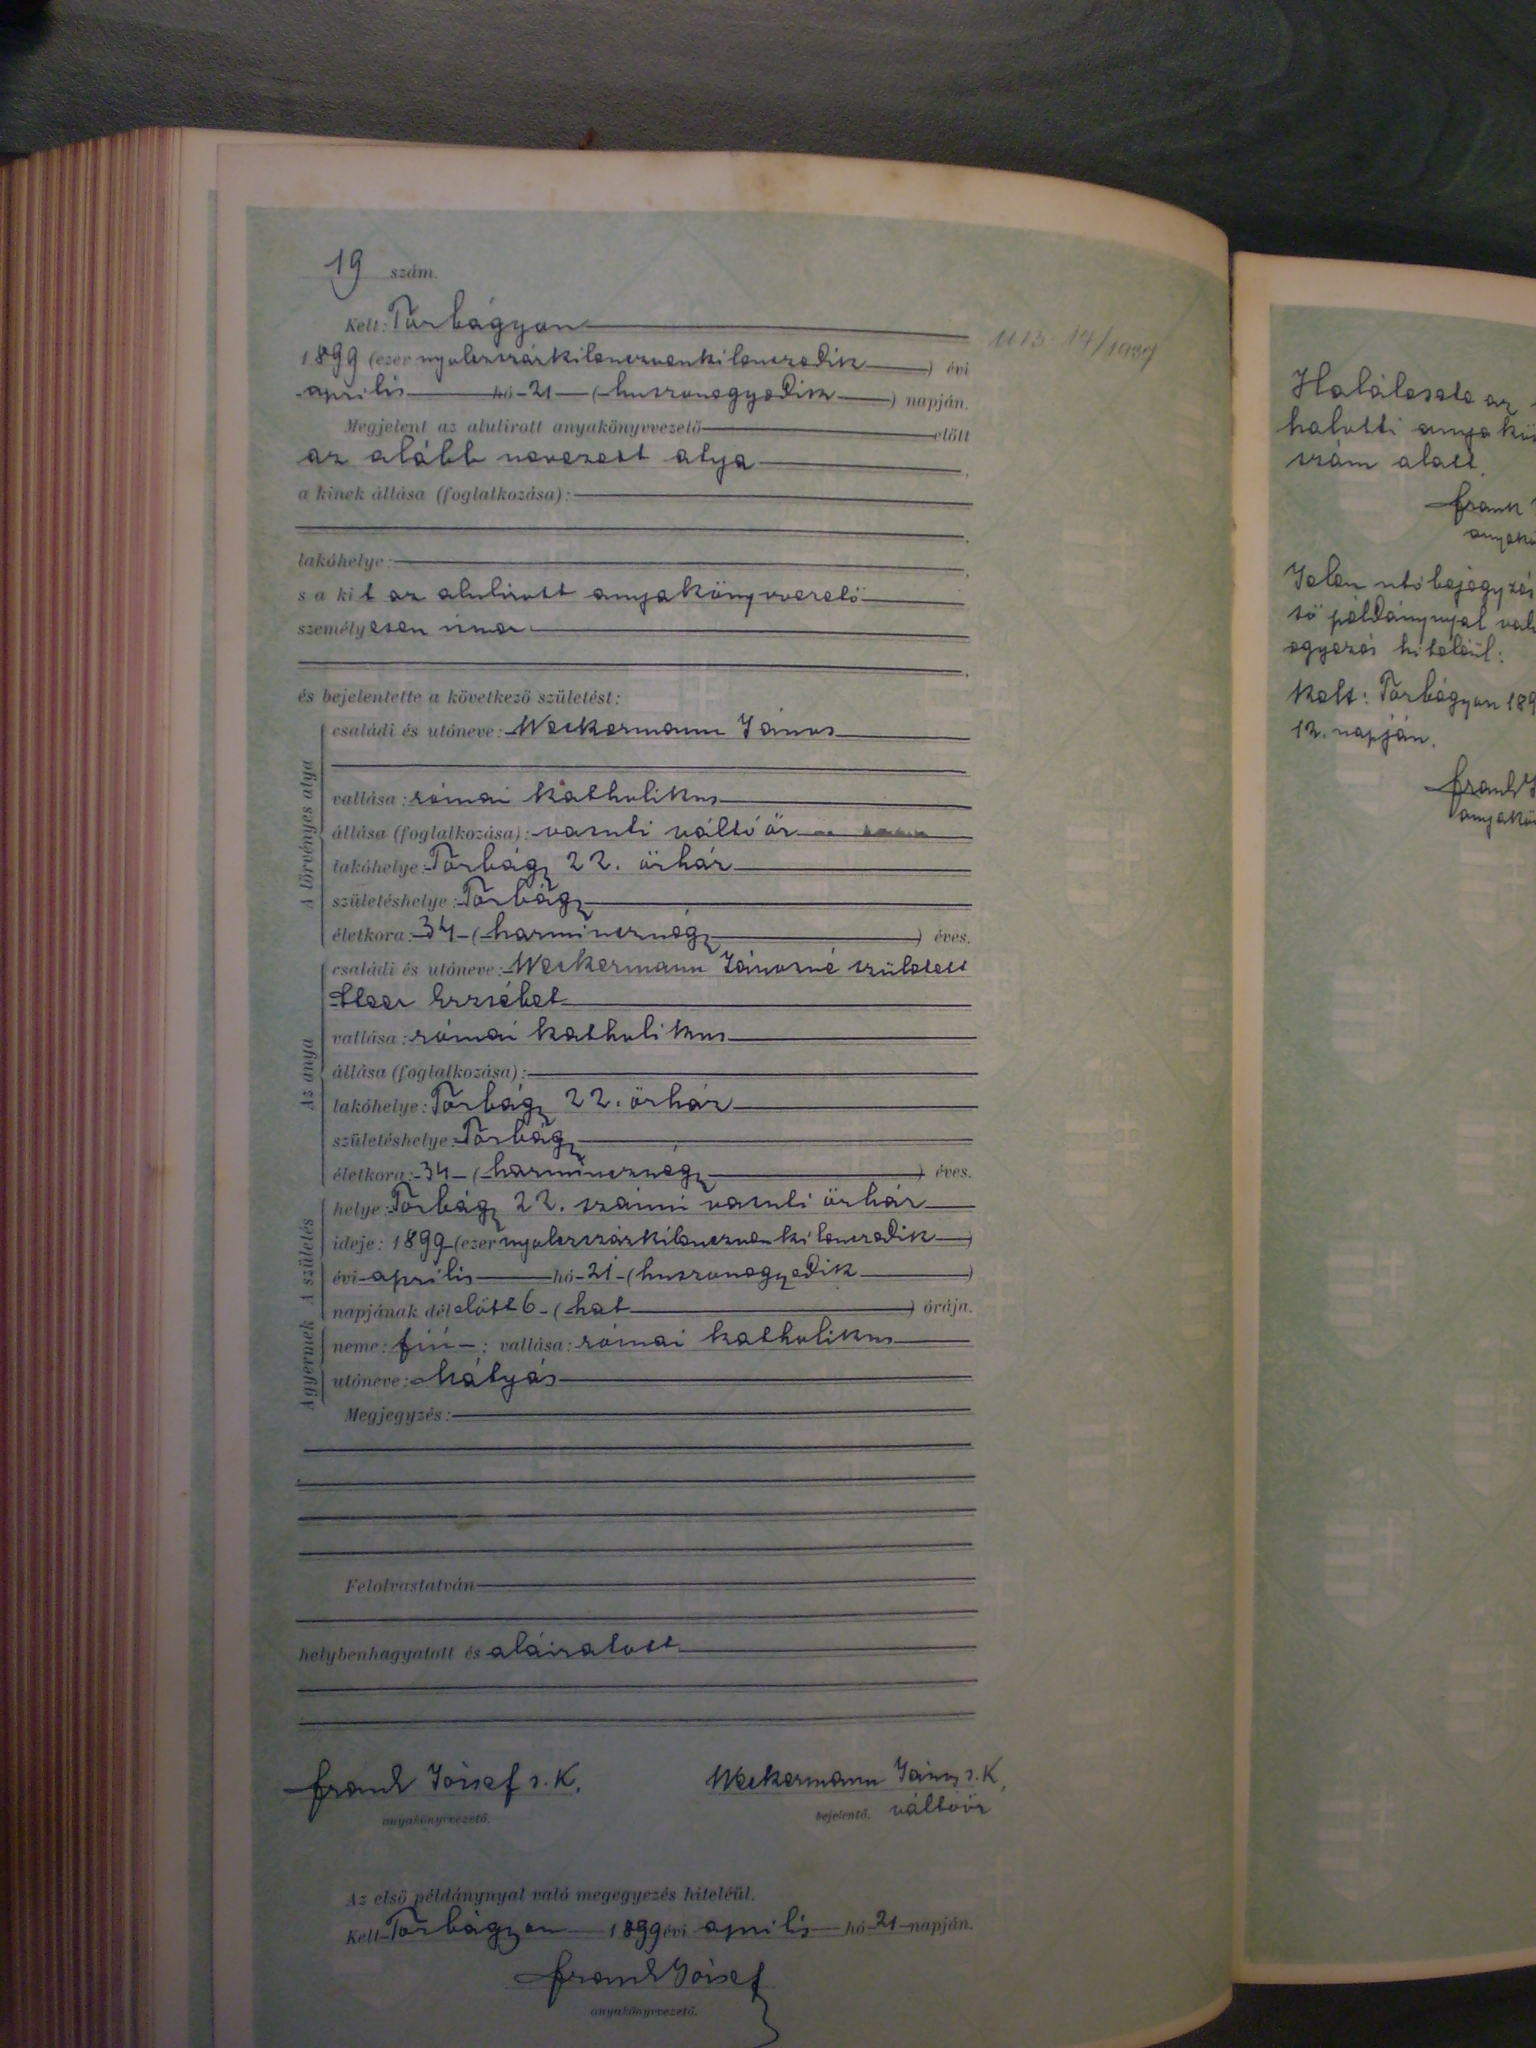 19 szám.
Kelt: Törbágyon
1899 (ezer nyolczszázkilenczvenkilenczedik) évi
április hó 21 (huszonegyedik) napján.
Megjelent az alulirott anyakönyvvezető előtt
az alább nevezett atya,
a kinek állása (foglalkozása):
lakóhelye:
s a kit az alulirott anyakönyvvezető
személyesen ismer.
és bejelentette a következő születést:
A törvényes atya
családi és utóneve: Weckermann János
vallása: római katholikus
állása (foglalkozása): vasuti váltóőr
lakóhelye: Törbágy 22. őrház
születéshelye: Törbágy
életkora: 34 (harmincznégy) éves.
Az anya
családi és utóneve: Weckermann Jánosné született
Erzsébet
vallása: római katholikus
állása (foglalkozása):
lakóhelye: Törbágy 22. őrház
születéshelye: Törbágy
életkora: 34 (harmincznégy) éves.
A születés
helye: Törbágy 22. számú vasuti őrház
ideje: 1899 (ezer nyolczszázkilenczvenkilenczedik)
évi április hó 21 (huszonegyedik)
napjának délelőtt 6 (hat) órája.
A gyermek
neme: fiú; vallása: római katholikus
utóneve: Mátyás
Megjegyzés:
Felolvastatván
helybenhagyatott és aláiratott
Frank József s. k.
anyakönyvvezető.
Weckermann János s. k.
bejelentő. váltóőr
Az első példánynyal való megegyezés hiteléül.
Kelt Törbágyon 1899 évi április hó 21 napján.
Frank József
anyakönyvvezető.
14/1939
Halálesete az
halotti anyakö
szám alatt.
Frank
anyakö
Jelen utóbejegyzés
ső példánynyal val
egyezés hiteléül:
Kelt: Törbágyon 189
12. napján.
Frank J
anyakö